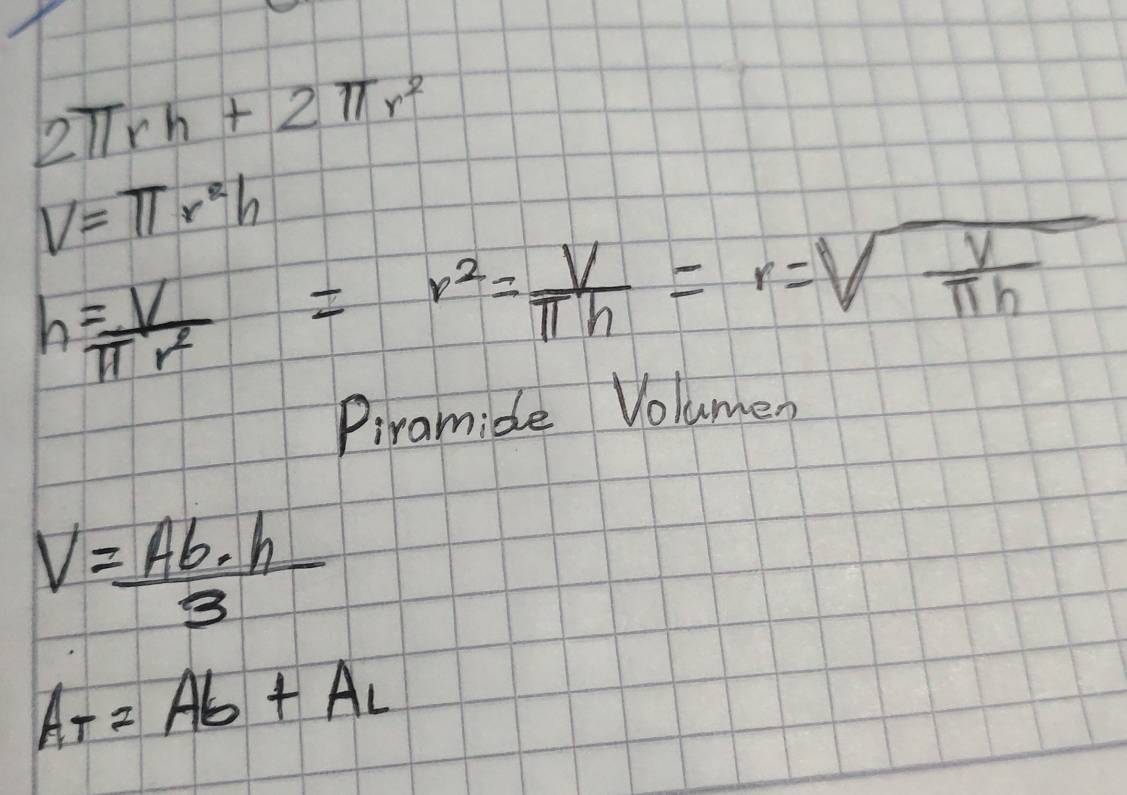 2πrh + 2πr²
V = πr²h
h = V/π r² = r² = V/πh = r = √V/πh
Piramide Volumen
V = Ab · h/3
AT = Ab + AL